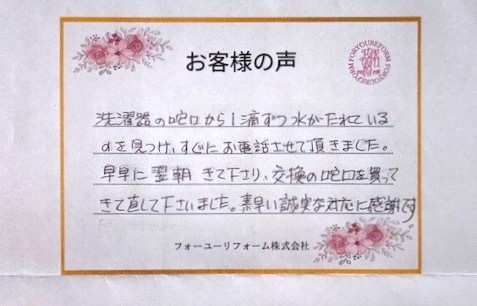 お客様の声
FORYOUREFORM FORYOUREFORM
洗濯器の蛇口から1滴ずつ水がたれている
のを見つけ、すぐにお電話させて頂きました。
早早に翌朝きて下さり、交換の蛇口を買って
きて直して下さいました。素早い誠実な対応に感謝です!
フォーユーリフォーム株式会社